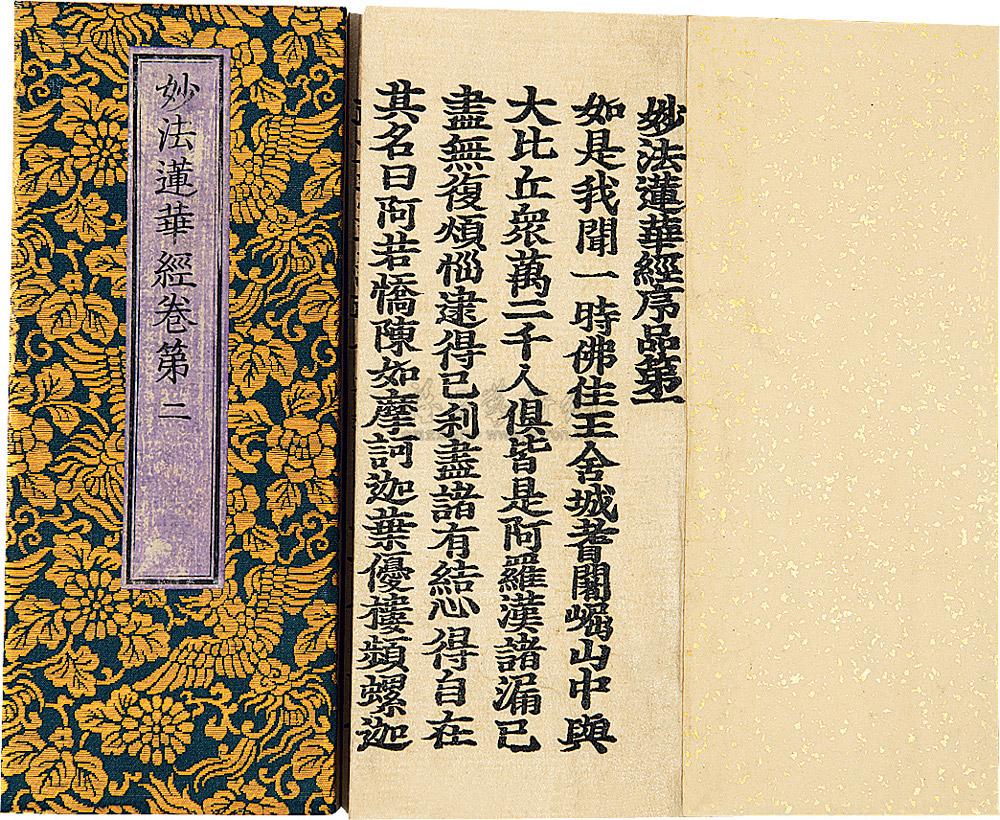 妙法蓮華經卷第二
妙法蓮華經序品第一
如是我聞一時佛住王舍城耆闍崛山中與
大比丘衆萬二千人俱皆是阿羅漢諸漏已
盡無復煩惱逮得已利盡諸有結心得自在
其名曰阿若憍陳如摩訶迦葉優樓頻螺迦